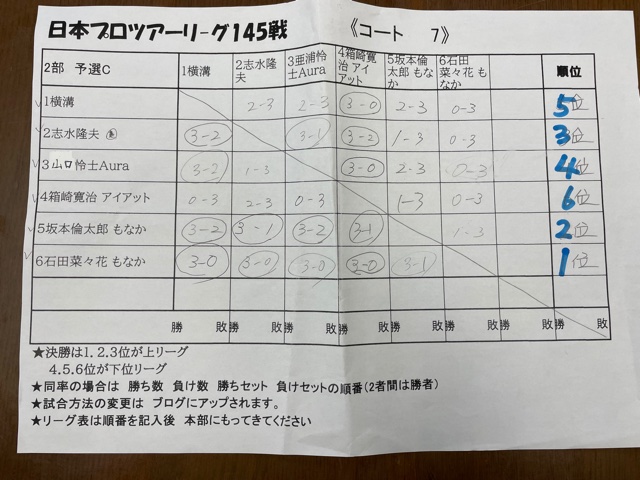 日本プロツアーリーグ145戦 《コート 7》
2部 予選C 1横溝 2志水隆夫 3亜浦怜士Aura 4箱崎寛治 アイアット 5坂本倫太郎 もなか 6石田菜々花 もなか 順位
1横溝 2-3 2-3 3-0 2-3 0-3 5位
2志水隆夫 3-2 3-1 3-2 1-3 0-3 3位
3山口怜士Aura 3-2 1-3 3-0 2-3 0-3 4位
4箱崎寛治 アイアット 0-3 2-3 0-3 1-3 0-3 6位
5坂本倫太郎 もなか 3-2 3-1 3-2 3-1 1-3 2位
6石田菜々花 もなか 3-0 3-0 3-0 3-0 3-1 1位
勝 敗 勝 敗 勝 敗 勝 敗 勝 敗 勝 敗 勝 敗 勝 敗
★決勝は1.2.3位が上リーグ
4.5.6位が下位リーグ
★同率の場合は 勝ち数 負け数 勝ちセット 負けセットの順番(2者間は勝者)
★試合方法の変更は ブログにアップされます。
★リーグ表は順番を記入後 本部にもってきてください